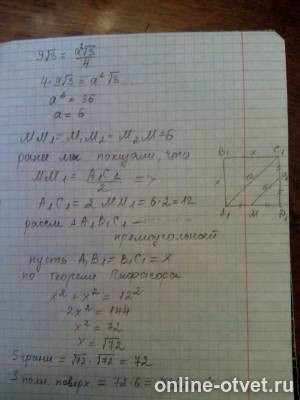 9√3 = a²√3/4
4·9√3 = a²√3
a² = 36
a = 6
MM₁ = M₁M₂ = M₂M = 6
ранее мы показали, что
MM₁ = A₁C₁/2 =>
A₁C₁ = 2 MM₁ = 6·2 = 12
рассм Δ A₁B₁C₁ —
прямоугольный
пусть A₁B₁ = B₁C₁ = x
по теореме Пифагора
x² + x² = 12²
2x² = 144
x² = 72
x = √72
S грани = √72 · √72 = 72
S полн. поверх. = 72·6 =
B₁ x C₁
x
A₁ M D₁
online-otvet.ru